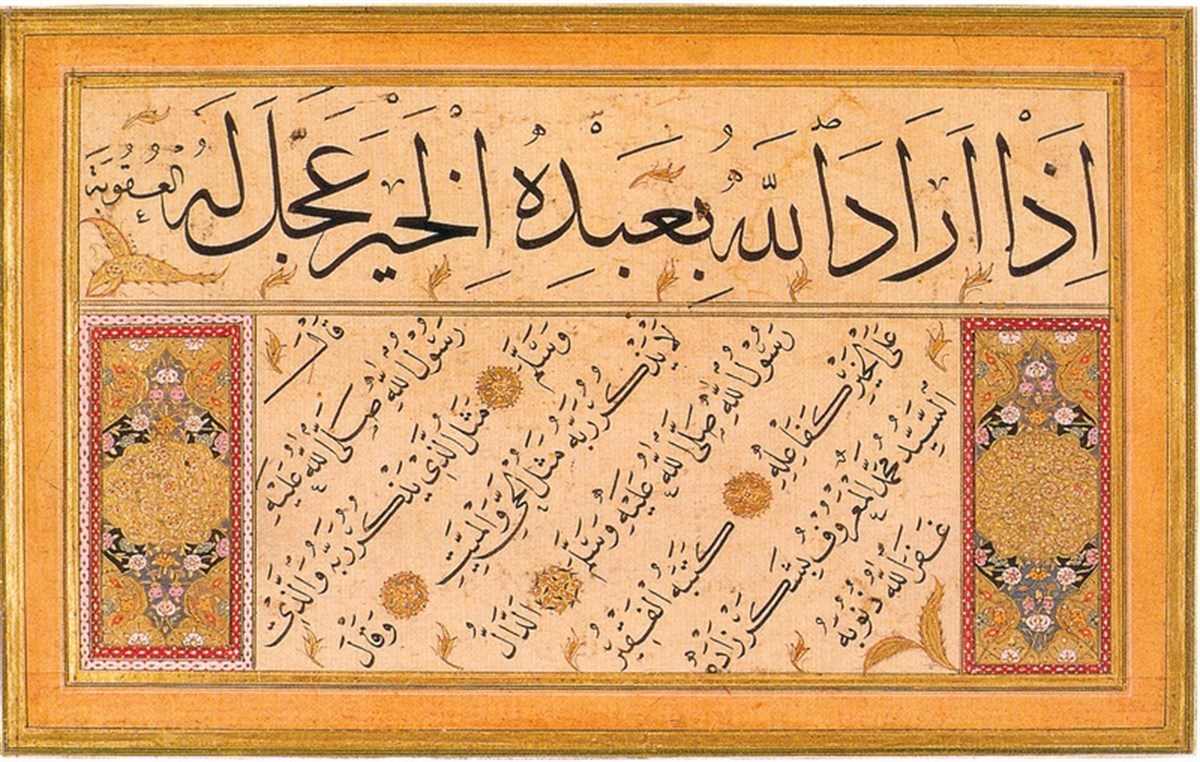 اِذَا اَرَادَ اللّٰهُ بِعَبْدِهِ الْخَيْرَ عَجَّلَ لَهُ الْعُقُوبَةَ
قَالَ
رَسُولُ اللّٰهِ صَلَّى اللّٰهُ عَلَيْهِ
وَسَلَّمَ مَثَلُ الَّذِي يَذْكُرُ رَبَّهُ وَالَّذِي
لَا يَذْكُرُ رَبَّهُ مَثَلُ الْحَيِّ وَالْمَيِّتِ وَقَالَ
رَسُولُ اللّٰهِ صَلَّى اللّٰهُ عَلَيْهِ وَسَلَّمَ الدَّالُّ
عَلَى الْخَيْرِ كَفَاعِلِهِ كَتَبَهُ الْفَقِيرُ
اَلسَّيِّدُ مُحَمَّدُ الْمَعْرُوفُ بِشَكَرْزَادَه
غَفَرَ اللّٰهُ ذُنُوبَهُ